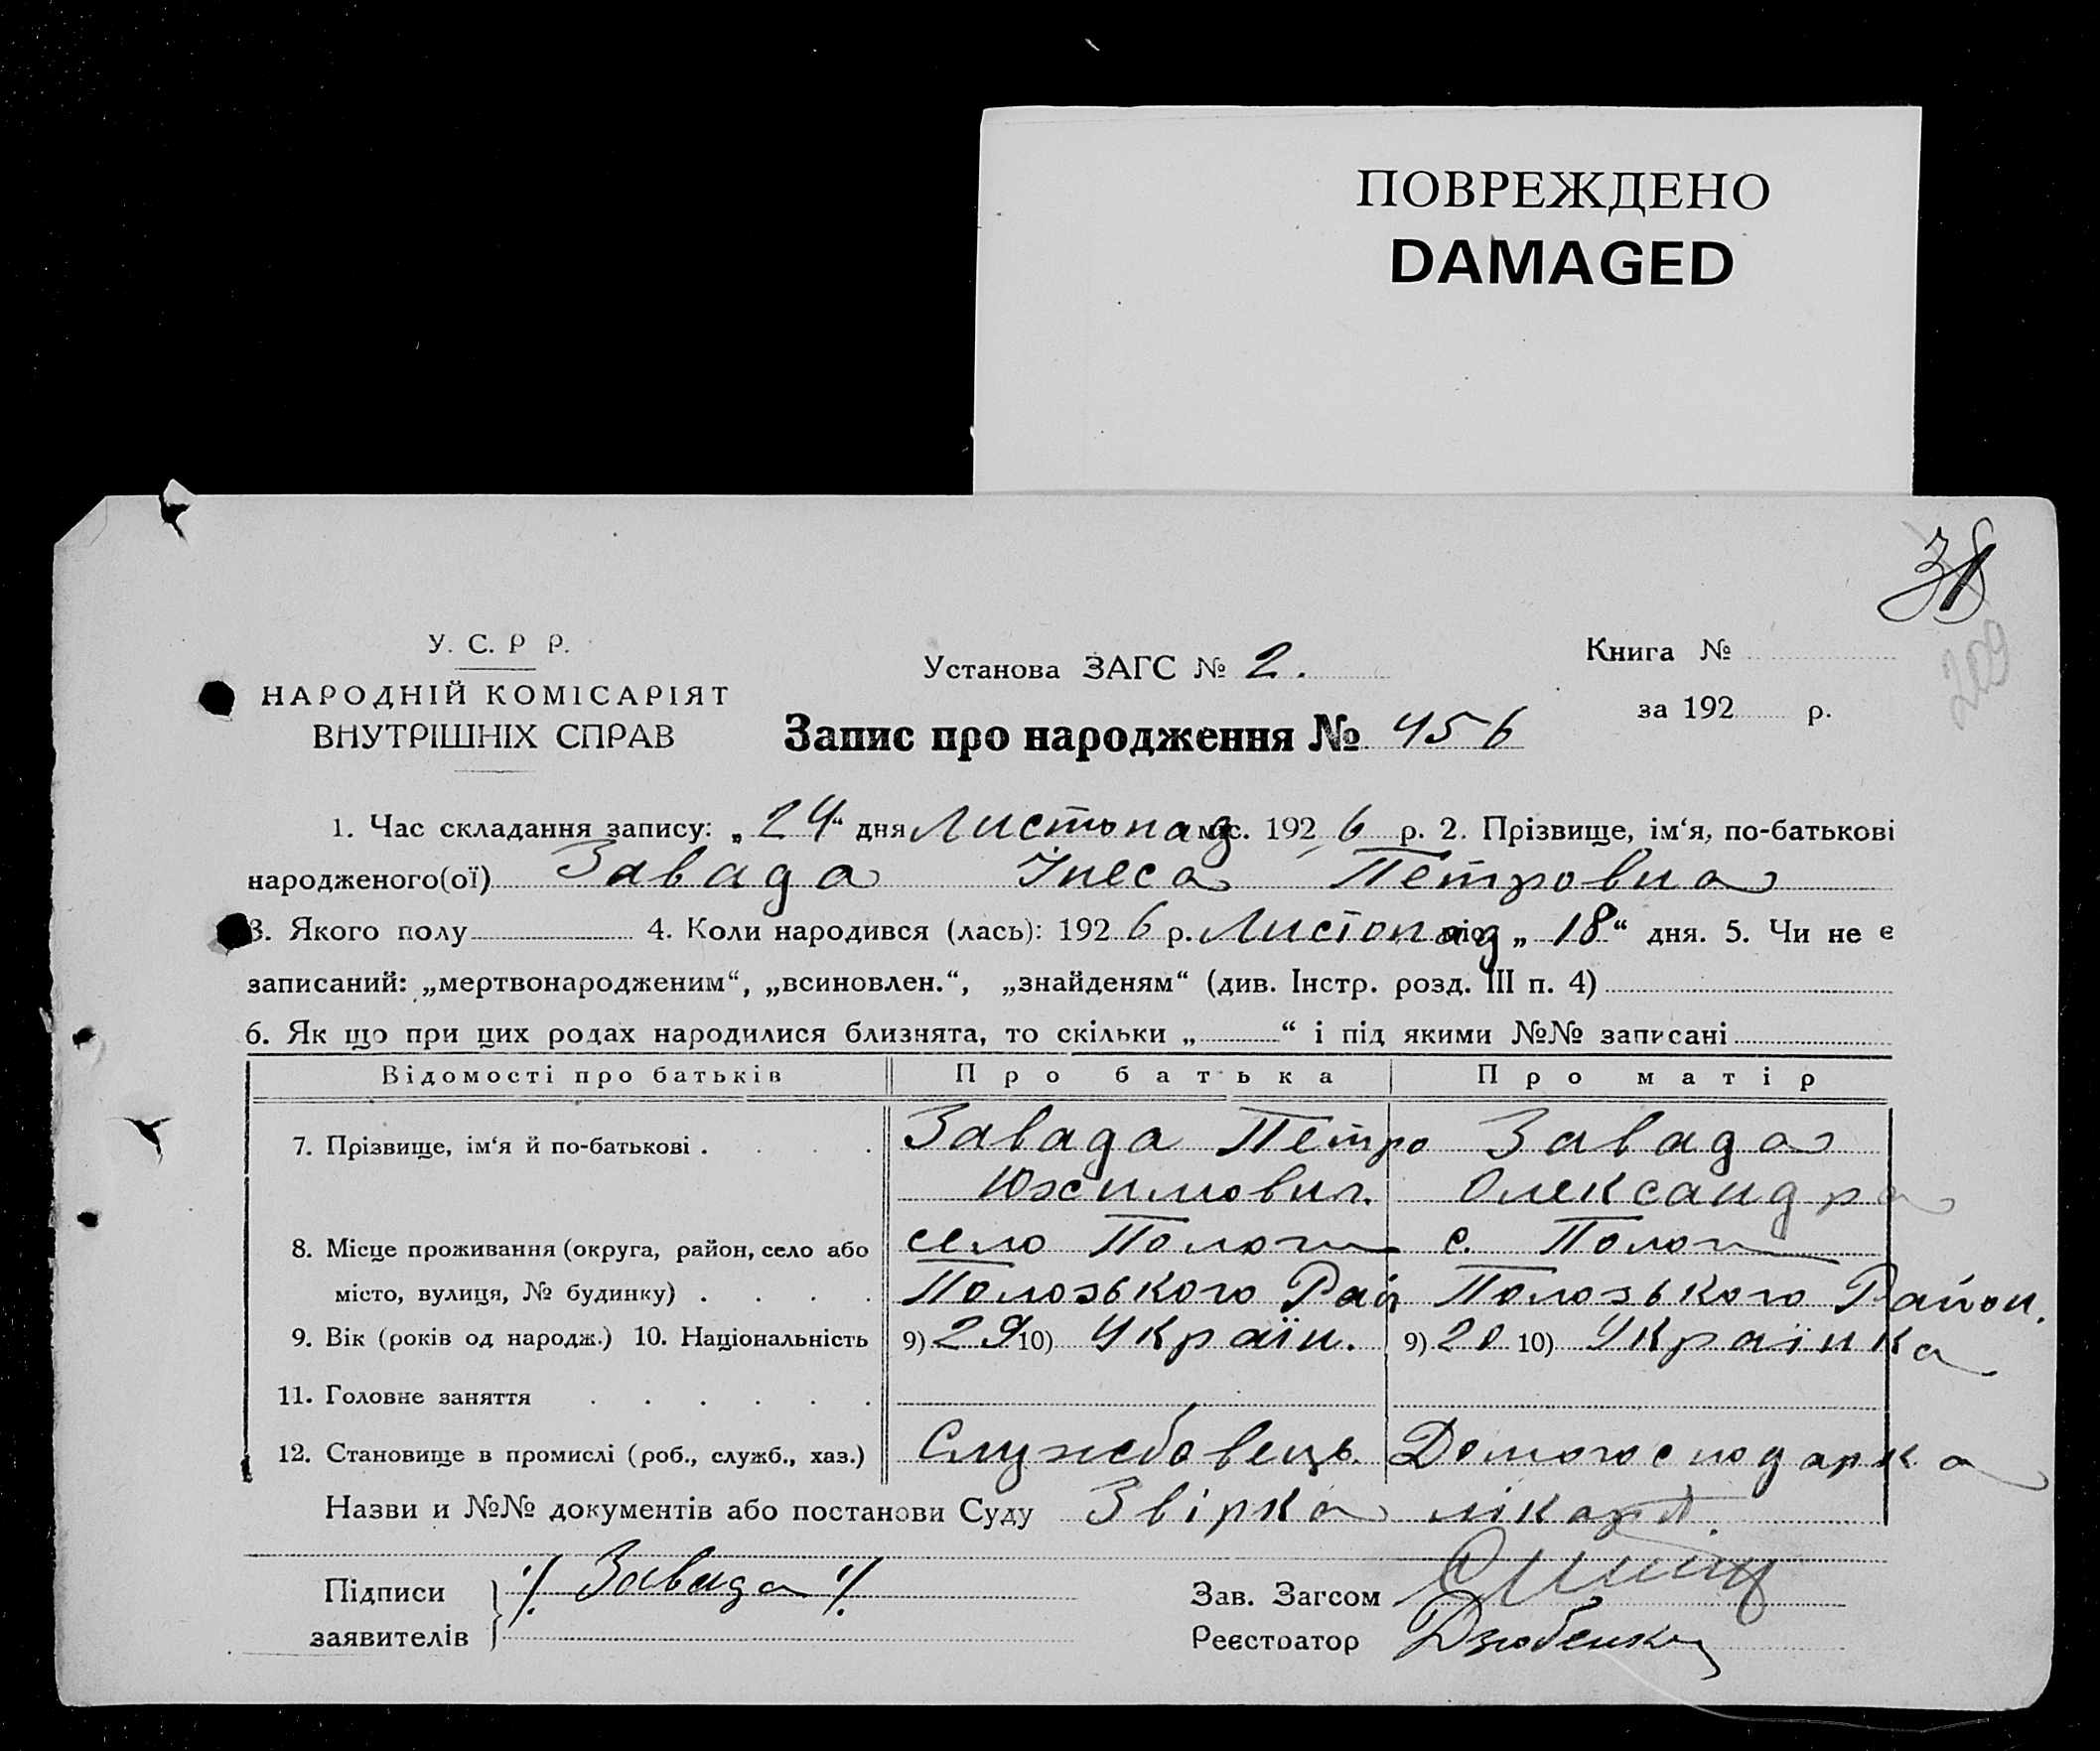 ПОВРЕЖДЕНО
DAMAGED
38
209
У. С. Р Р.
НАРОДНІЙ КОМІСАРІЯТ
ВНУТРІШНІХ СПРАВ
Установа ЗАГС № 2.
Книга №
за 192 р.
Запис про народження № 456
1. Час складання запису: „24“ дня Листопад міс. 1926 р. 2. Прізвище, ім‘я, по-батькові
народженого(ої) Завада Інеса Петровна
3. Якого полу 4. Коли народився (лась): 1926 р. Листопад міс. „18“ дня. 5. Чи не є
записаний: „мертвонародженим“, „всиновлен.“, „знайденям“ (див. Інстр. розд. III п. 4)
6. Як що при цих родах народилися близнята, то скільки „ “ і під якими №№ записані
Відомості про батьків Про батька Про матір
7. Прізвище, ім‘я й по-батькові . . . . Завада Петро Завада
Юхимович. Олександра
8. Місце проживання (округа, район, село або село Пологи с. Пологи
місто, вулиця, № будинку) . . . . Полозького Рай Полозького Район.
9. Вік (років од народж.) 10. Національність 9) 29 10) Україн. 9) 20 10) Українка
11. Головне заняття . . . . . .
12. Становище в промислі (роб., служб., хаз.) Службовець. Домогосподарка
Назви и №№ документів або постанови Суду Звірка лікарт.
Підписи Завада
заявителів
Зав. Загсом
Реєстратор Дзюбенко